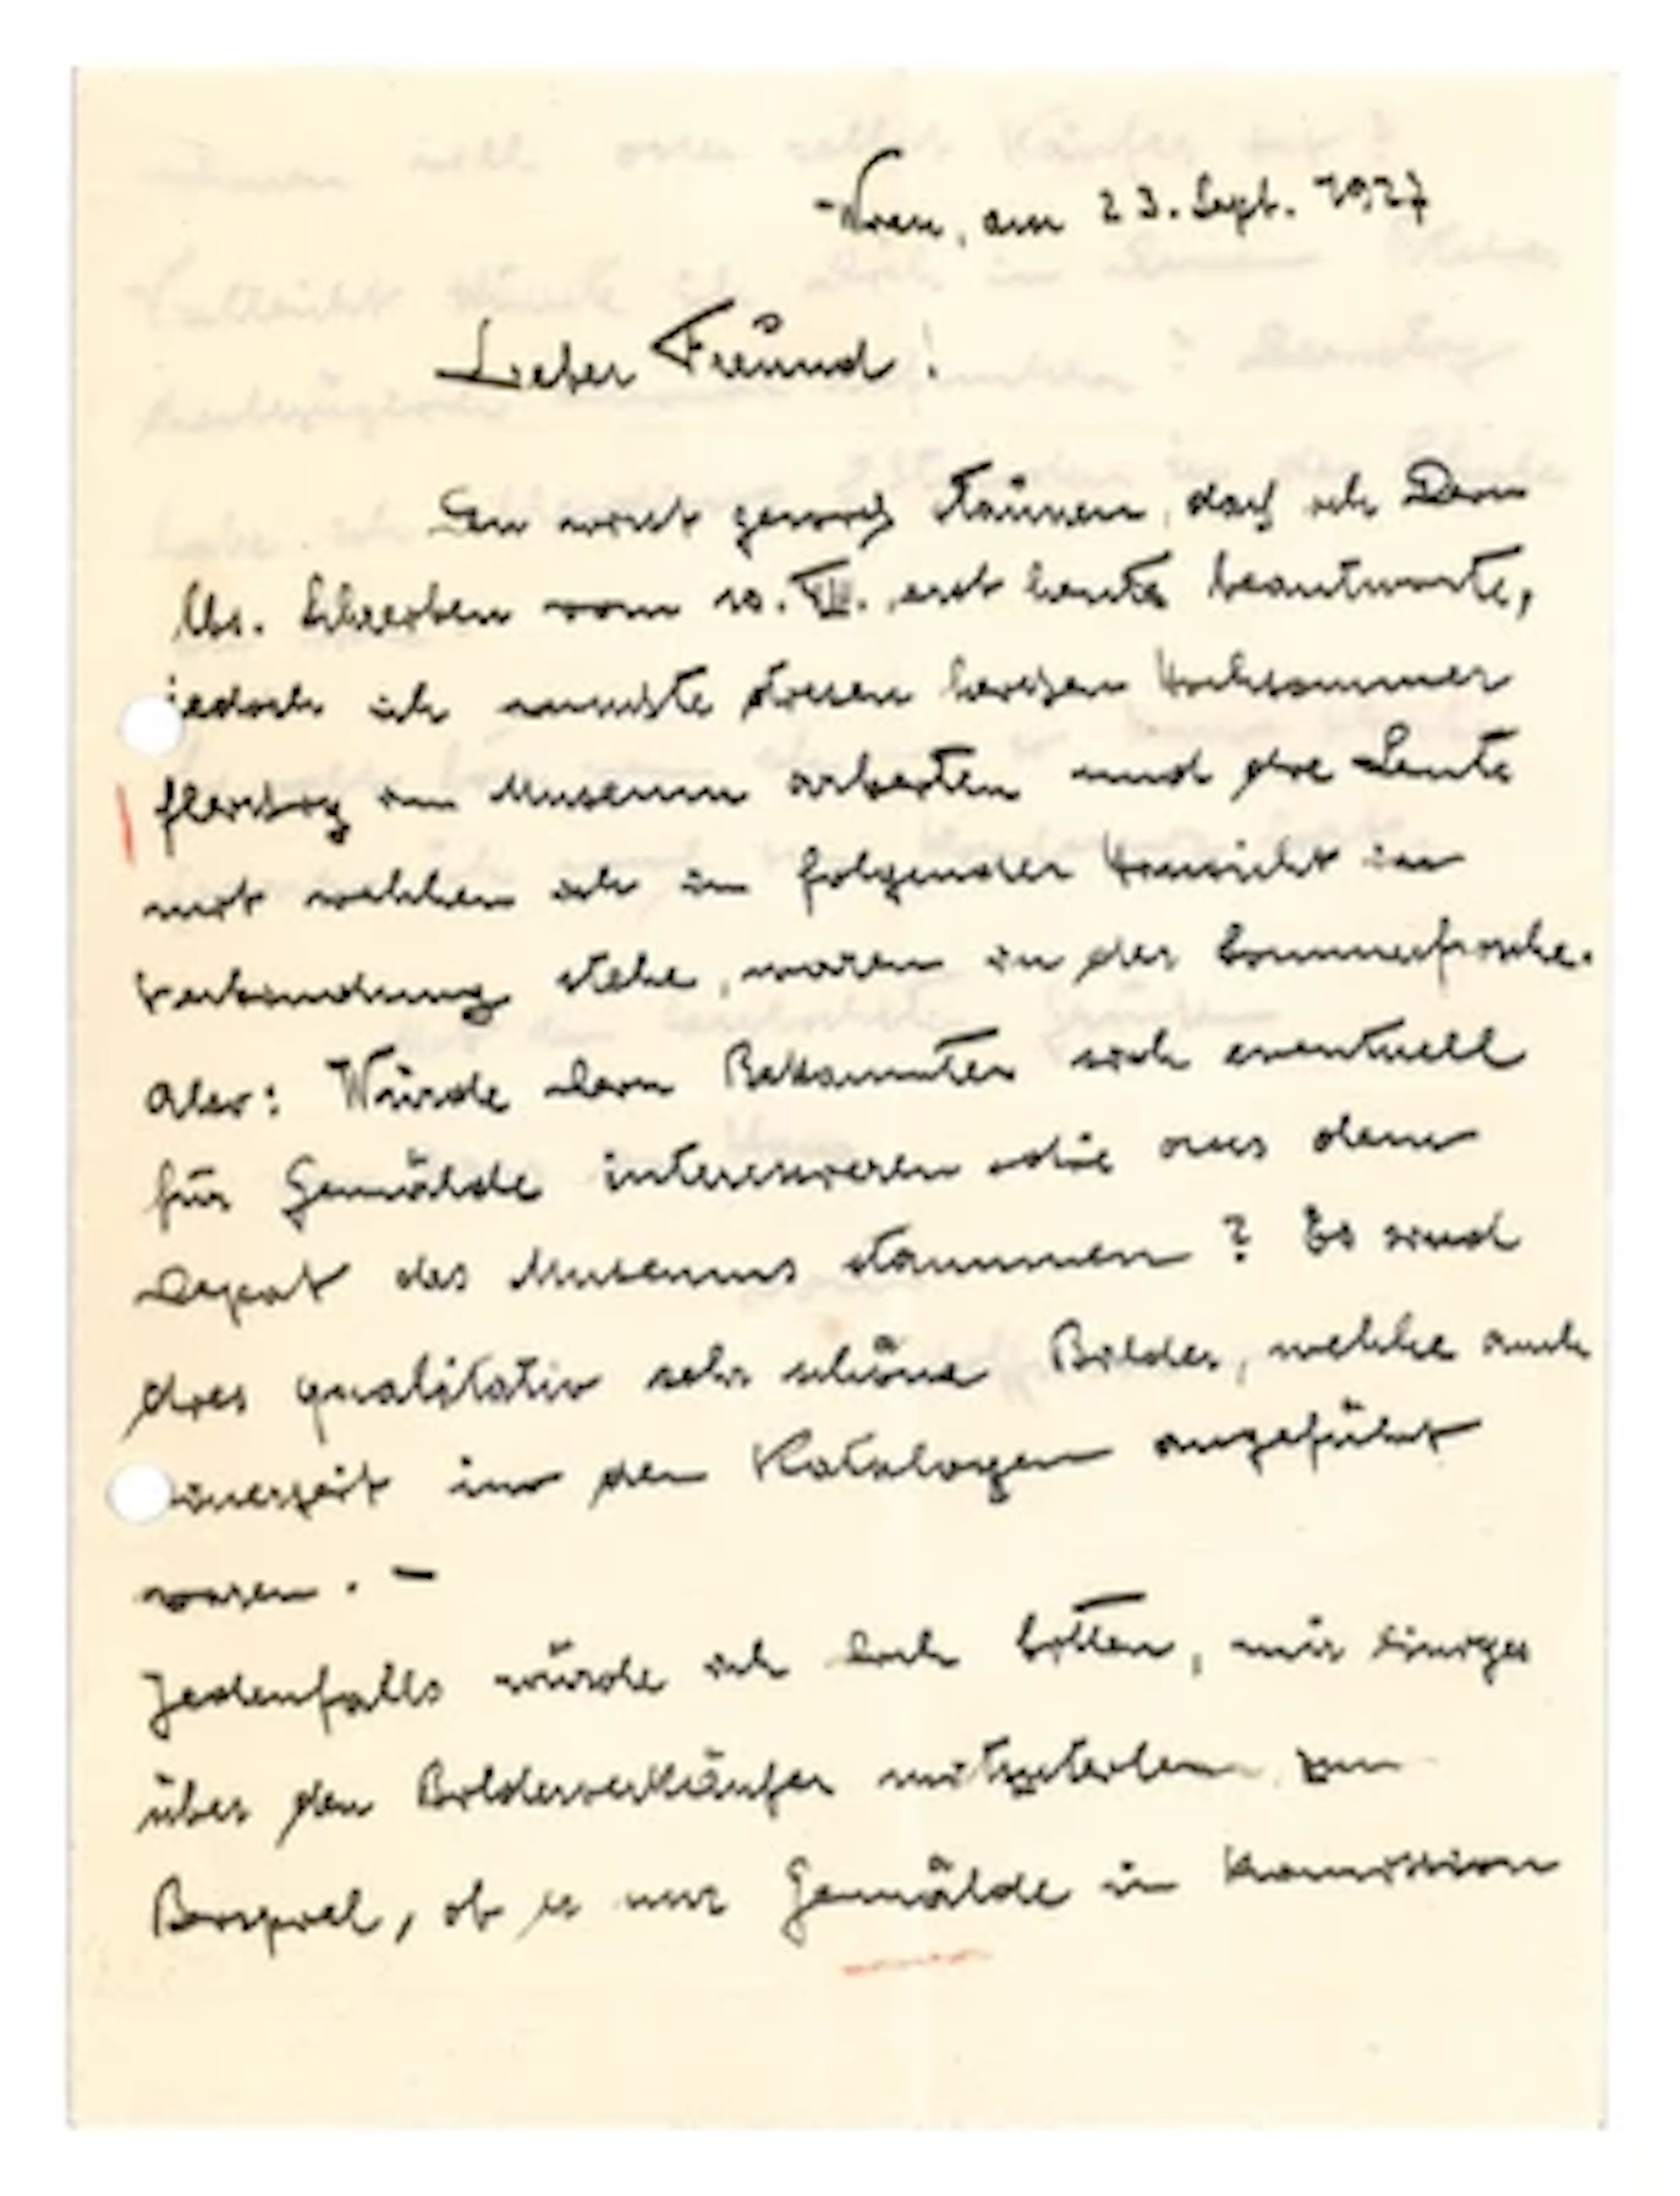 Wien, am 23. Sept. 1927
Lieber Freund!
Du wirst gewiss staunen, dass ich Dein
lbs. Schreiben vom 10. VII. erst heute beantworte,
jedoch ich musste diesen heissen Hochsommer
fleissig im Museum arbeiten und die Leute
mit welchen ich in folgender Hinsicht in
Verbindung stehe, waren in der Sommerfrische.
Aber: Würde Dein Bekannter sich eventuell
für Gemälde interessieren die aus dem
Depot des Museums stammen? Es sind
dies qualitativ sehr schöne Bilder, welche auch
seinerzeit in den Katalogen angeführt
waren. –
Jedenfalls würde ich Dich bitten, mir einiges
über den Bilderverkäufer mitzuteilen zum
Beispiel, ob er nur Gemälde in Komission